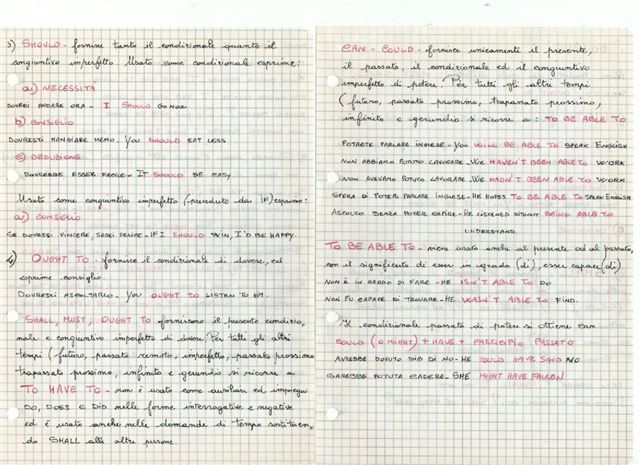 3) SHOULD - fornisce tanto il condizionale quanto il
congiuntivo imperfetto. Usato come condizionale esprime:
a) NECESSITÀ
DOVREI ANDARE ORA - I SHOULD GO NOW
b) CONSIGLIO
DOVRESTI MANGIARE MENO. YOU SHOULD EAT LESS
c) DEDUZIONE
DOVREBBE ESSER FACILE - IT SHOULD BE EASY
Usato come congiuntivo imperfetto (preceduto da IF) esprime:
a) CONSIGLIO
SE DOVESSI VINCERE, SAREI FELICE - IF I SHOULD WIN, I'D BE HAPPY
4) OUGHT TO - fornisce il condizionale di dovere, ed
esprime consiglio
DOVRESTI ASCOLTARLO - YOU OUGHT TO LISTEN TO HIM.
SHALL, MUST, OUGHT TO forniscono il presente condizio,
nale e congiuntivo imperfetto di dovere. Per tutti gli altri
tempi (futuro, passato remoto, imperfetto, passato prossimo
trapassato prossimo, infinito e gerundio si ricorre a
TO HAVE TO - non è usato come ausiliari ed impiega
DO, DOES E DID nelle forme interrogative e negative
ed è usato anche nelle domande di tempo sostituen,
do SHALL alle altre persone.
CAN - COULD - fornisce unicamente il presente,
il passato, il condizionale ed il congiuntivo
imperfetto di potere. Per tutti gli altri tempi
(futuro, passato prossimo, trapassato prossimo,
infinito e gerundio si ricorre a: TO BE ABLE TO
POTRETE PARLARE INGLESE - YOU WILL BE ABLE TO SPEAK ENGLISH
NON ABBIAMO POTUTO LAVORARE - WE HAVEN'T BEEN ABLE TO WORK
NON AVEVAMO POTUTO LAVORARE - WE HADN'T BEEN ABLE TO WORK
SPERA DI POTER PARLARE INGLESE - HE HOPES TO BE ABLE TO SPEAK ENGLISH
ASCOLTÒ SENZA POTER CAPIRE - HE LISTENED WITHOUT BEING ABLE TO
UNDERSTAND.
TO BE ABLE TO - viene usato anche al presente ed al passato,
con il significato di esser in grado (di), esser capace (di)
NON È IN GRADO DI FARE - HE ISN'T ABLE TO DO
NON FU CAPACE DI TROVARE - HE WASN'T ABLE TO FIND.
Il condizionale passato di potere si ottiene con
COULD (O MIGHT) + HAVE + PARTICIPIO PASSATO
AVREBBE DOVUTO DIRE DI NO - HE COULD HAVE SAID NO
SAREBBE POTUTA CADERE - SHE MIGHT HAVE FALLEN